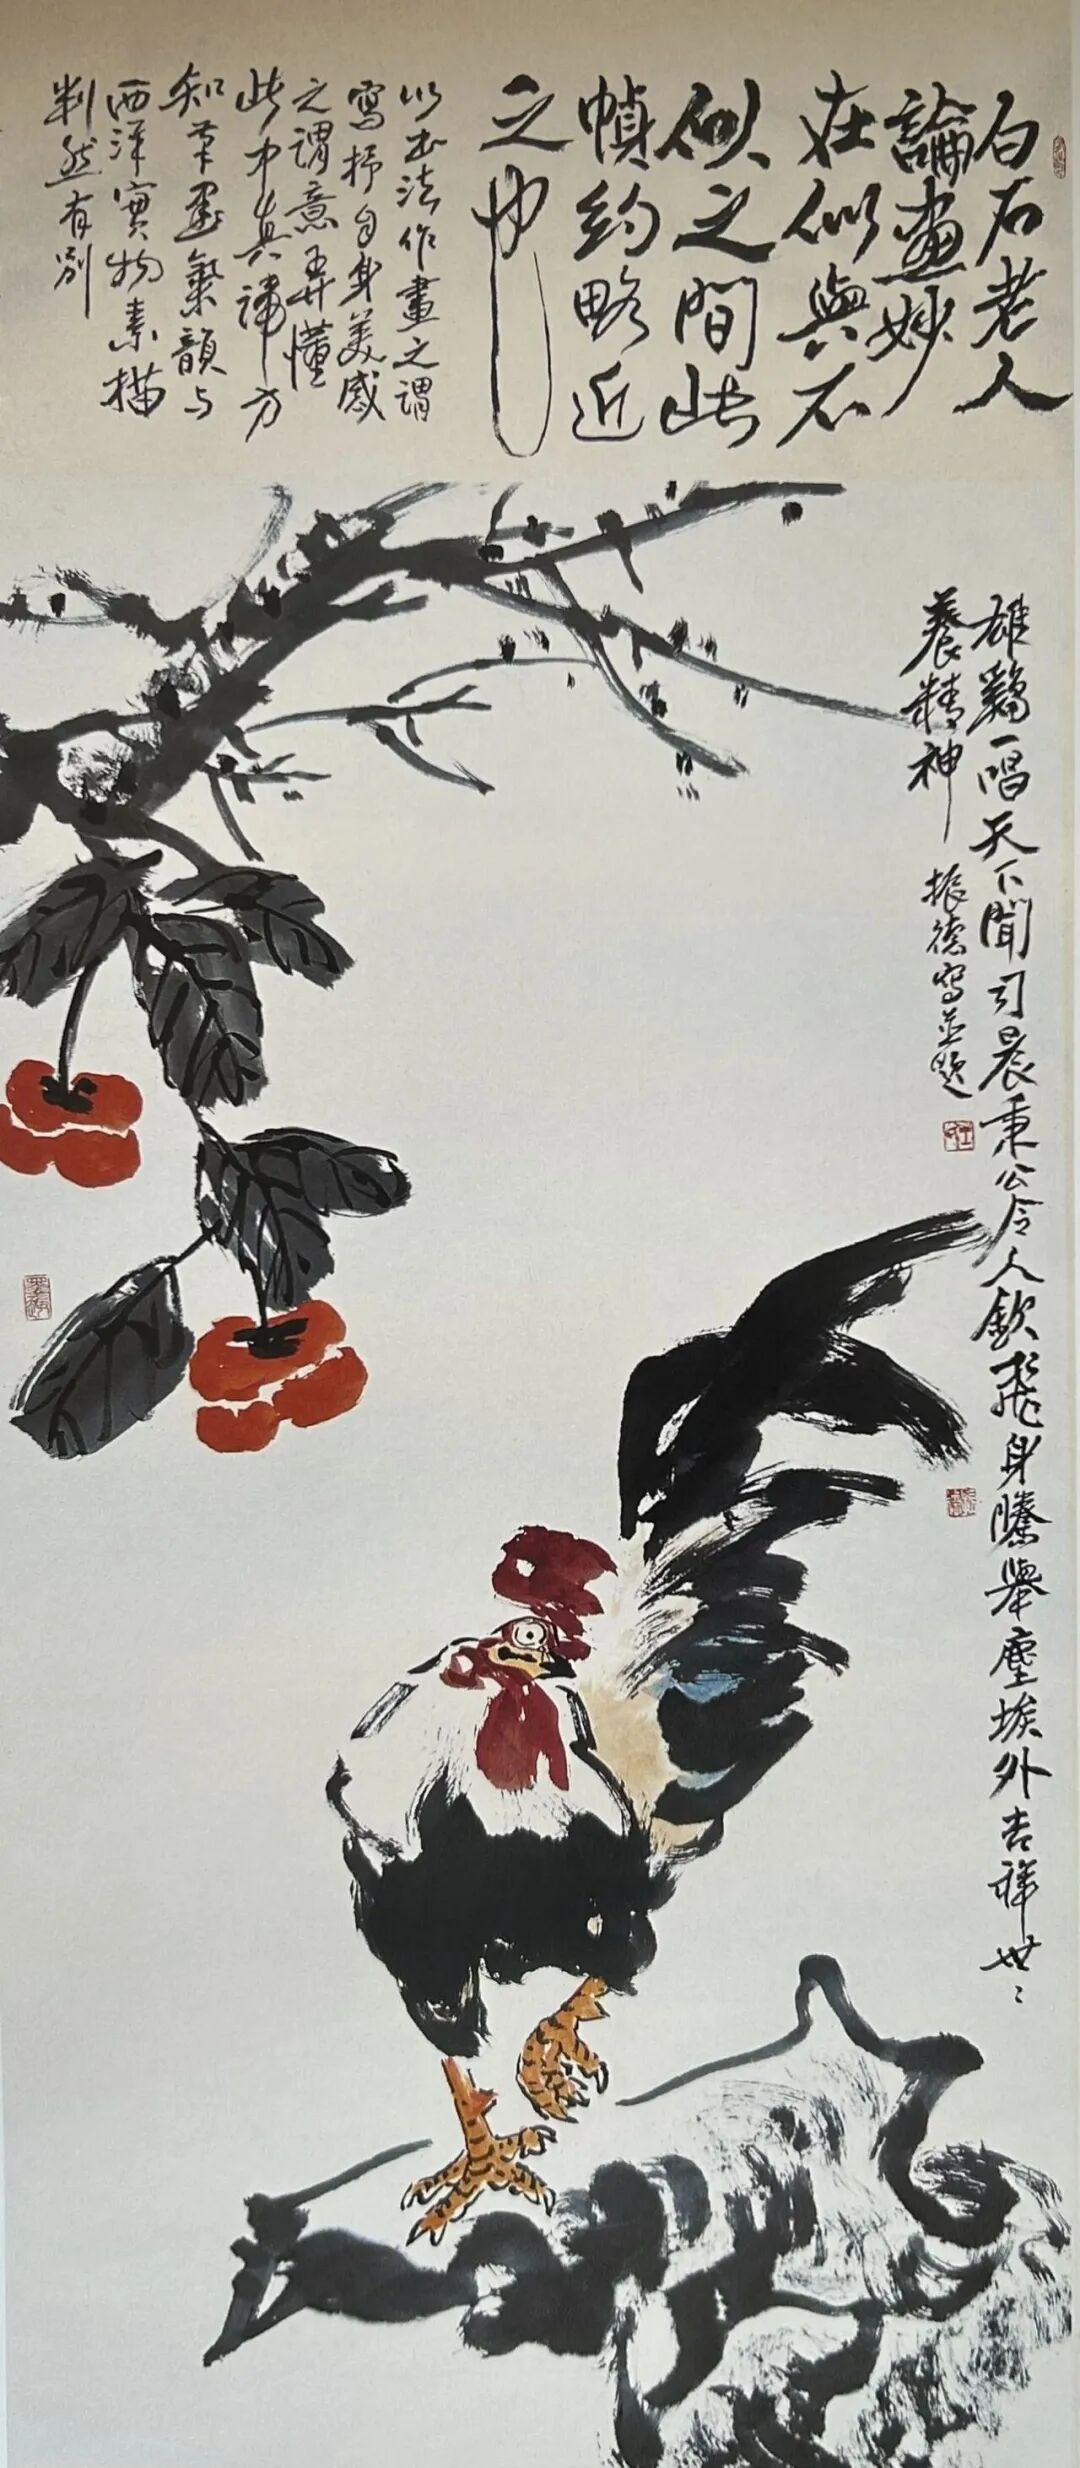 白石老人
論畫妙
在似與不
似之間此
幀約略近
之也
以書法作畫之謂
寫抒自身美感
之謂意弄懂
此中真諦方
知筆墨氣韻与
西洋實物素描
判然有別
雄鷄一唱天下聞司晨秉公令人欽飛身騰舉塵埃外吉祥世〻
養精神
振德寫並題